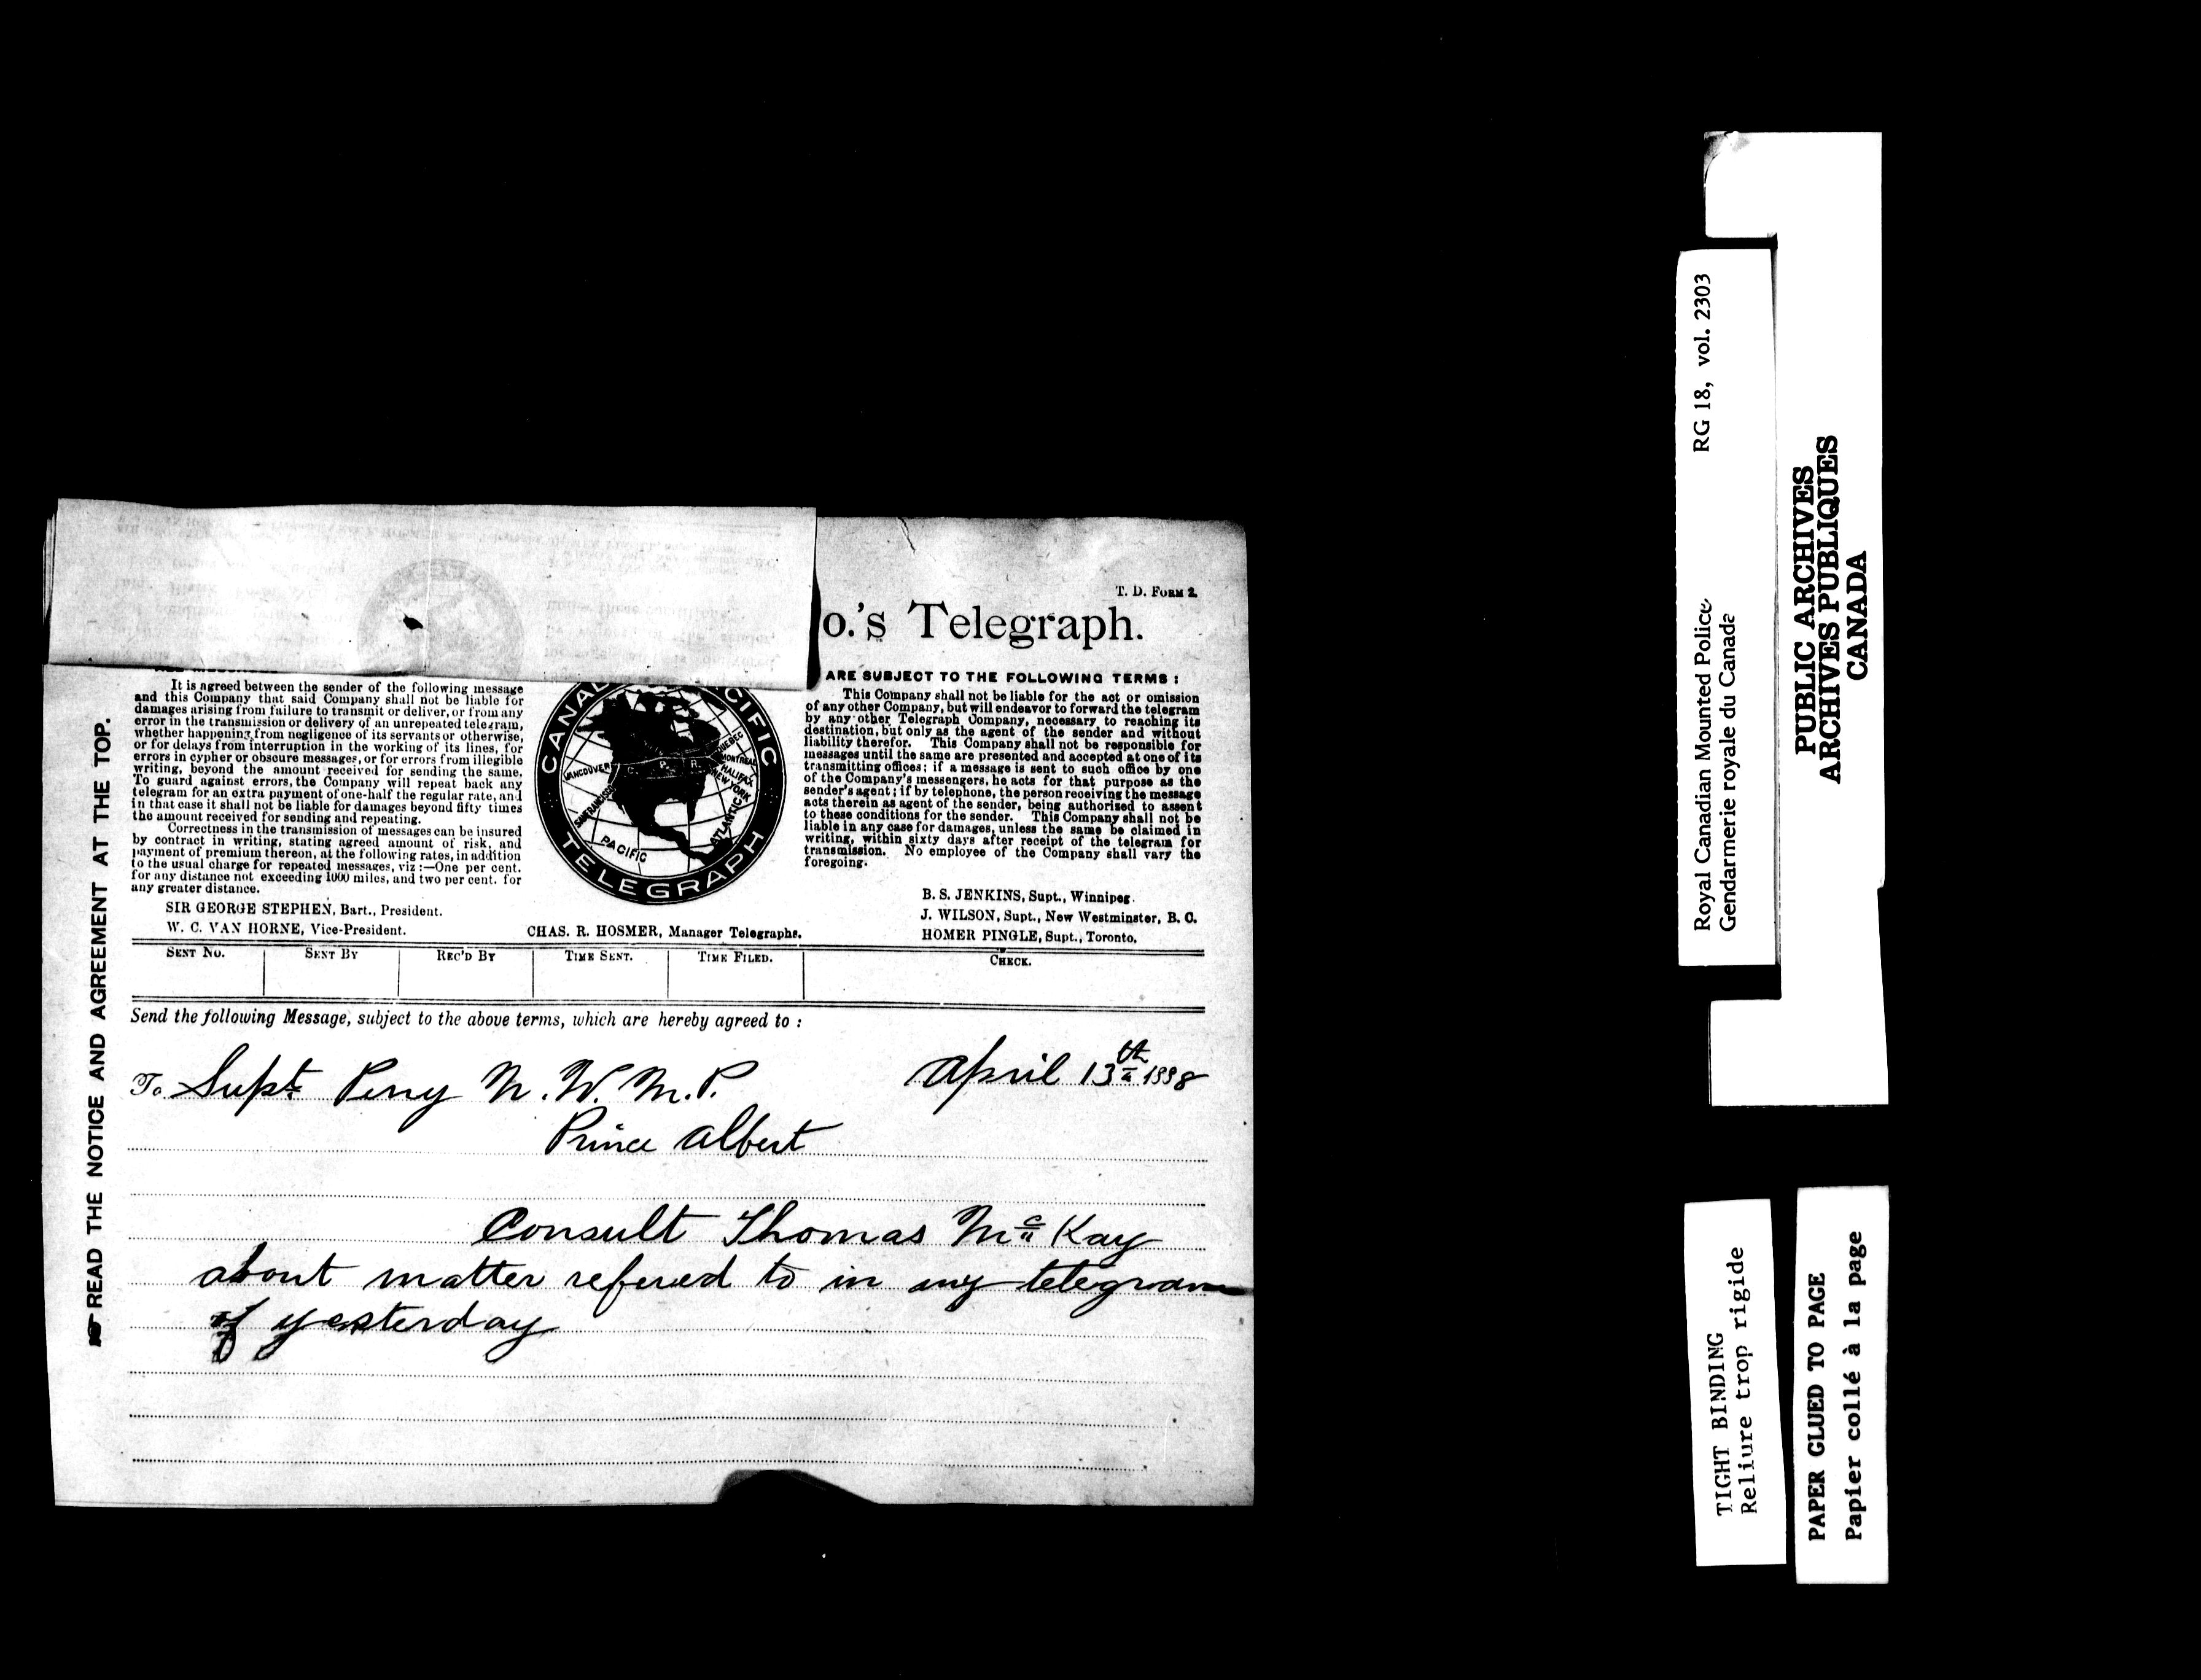 T. D. FORM 2.
o.'s Telegraph.
ARE SUBJECT TO THE FOLLOWING TERMS :
It is agreed between the sender of the following message
and this Company that said Company shall not be liable for
damages arising from failure to transmit or deliver, or from any
error in the transmission or delivery of an unrepeated telegram,
whether happening from negligence of its servants or otherwise,
or for delays from interruption in the working of its lines, for
errors in cypher or obscure messages, or for errors from illegible
writing, beyond the amount received for sending the same.
To guard against errors, the Company will repeat back any
telegram for an extra payment of one-half the regular rate, and
in that case it shall not be liable for damages beyond fifty times
the amount received for sending and repeating.
Correctness in the transmission of messages can be insured
by contract in writing, stating agreed amount of risk, and
payment of premium thereon, at the following rates, in addition
to the usual charge for repeated messages, viz :—One per cent.
for any distance not exceeding 1000 miles, and two per cent. for
any greater distance.
SIR GEORGE STEPHEN, Bart., President.
W. C. VAN HORNE, Vice-President.
CANA CIFIC
TELEGRAPH
VANCOUVER
C. P. R.
QUEBEC
MONTREAL
HALIFAX
NEW YORK
SAN FRANCISCO
ATLANTIC
PACIFIC
CHAS. R. HOSMER, Manager Telegraphs.
This Company shall not be liable for the act or omission
of any other Company, but will endeavor to forward the telegram
by any other Telegraph Company, necessary to reaching its
destination, but only as the agent of the sender and without
liability therefor. This Company shall not be responsible for
messages until the same are presented and accepted at one of its
transmitting offices; if a message is sent to such office by one
of the Company's messengers, he acts for that purpose as the
sender's agent; if by telephone, the person receiving the message
acts therein as agent of the sender, being authorised to assent
to these conditions for the sender. This Company shall not be
liable in any case for damages, unless the same be claimed in
writing, within sixty days after receipt of the telegram for
transmission. No employee of the Company shall vary the
foregoing.
B. S. JENKINS, Supt., Winnipeg.
J. WILSON, Supt., New Westminster, B. C.
HOMER PINGLE, Supt., Toronto.
SENT NO. SENT BY REC'D BY TIME SENT. TIME FILED. CHECK.
Send the following Message, subject to the above terms, which are hereby agreed to :
April 13th 1888
To Supt Perry N.W.M.P.
Prince Albert
Consult Thomas McKay
about matter refered to in my telegram
of yesterday
READ THE NOTICE AND AGREEMENT AT THE TOP.
Royal Canadian Mounted Police RG 18, vol. 2303
Gendarmerie royale du Canada
PUBLIC ARCHIVES
ARCHIVES PUBLIQUES
CANADA
TIGHT BINDING
Reliure trop rigide
PAPER GLUED TO PAGE
Papier collé à la page